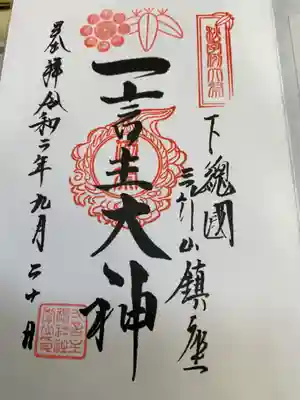 下總國
三竹山鎮座
一言主大神
奉拝令和二年九月二十日